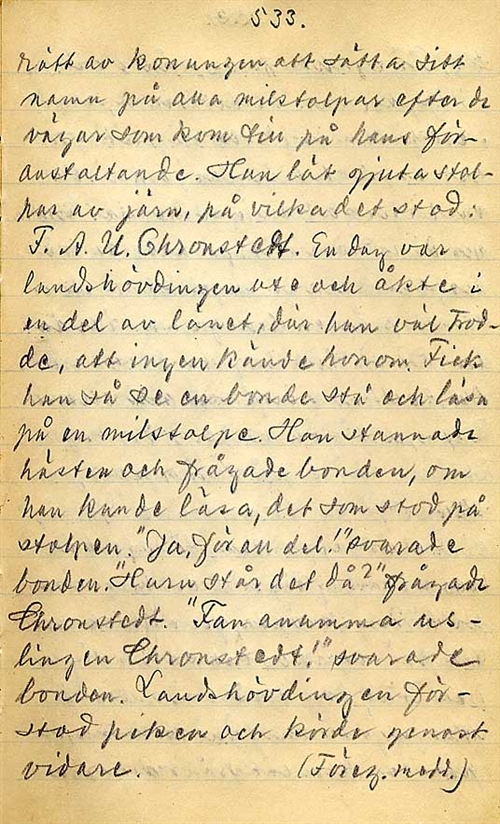 533.
rätt av konungen att sätta sitt
namn på alla milstolpar efter de
vägar som kom till på hans för-
anstaltande. Han lät gjuta stol-
par av järn, på vilka det stod:
F. A. U. Chronstedt. En dag var
landshövdingen ute och åkte i
en del av länet, där han väl trod-
de, att ingen kände honom. Fick
han så se en bonde stå och läsa
på en milstolpe. Han stannade
hästen och frågade bonden, om
han kunde läsa, det som stod på
stolpen. "Ja, för all del!" svarade
bonden. "Huru står det då?" frågade
Chronstedt. "Fan anamma us-
lingen Chronstedt!" svarade
bonden. Landshövdingen för-
stod piken och körde genast
vidare. (Föreg. medd.)